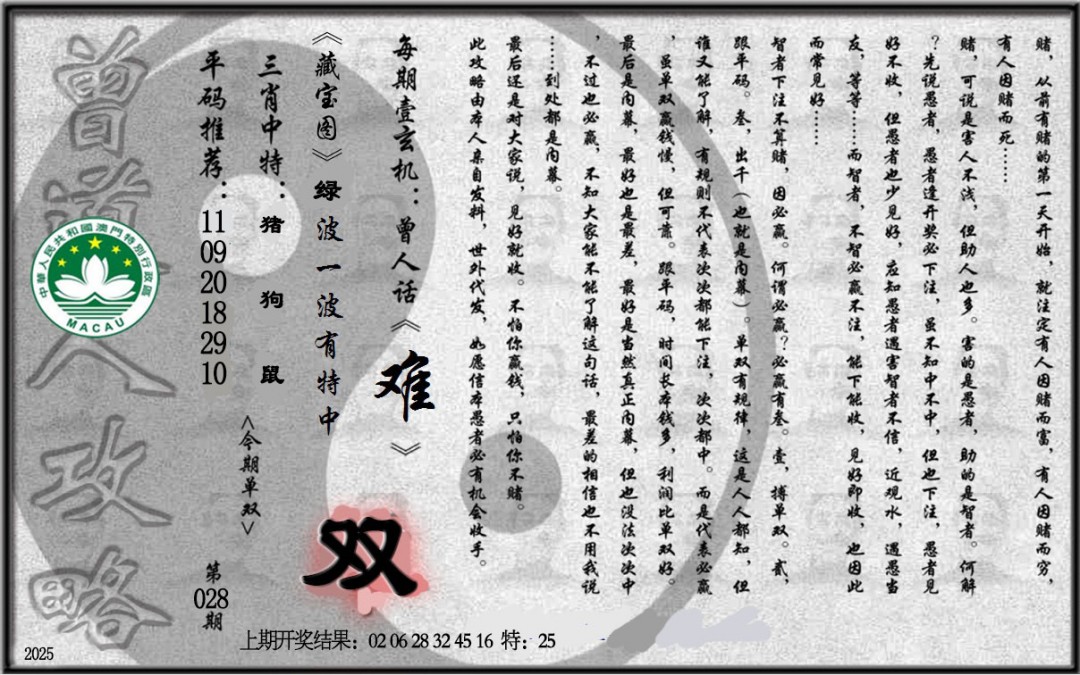 赌，从前有赌的第一天开始，就注定有人因赌而富，有人因赌而穷，
有人因赌而死……
赌，可说是害人不浅，但助人也多。害的是愚者，助的是智者。何解
？先说愚者，愚者逢开奖必下注，虽不知中不中，但也下注，愚者见
好不收，但愚者也少见好，应知愚者遇害智者不信，近观水，遇愚当
友，等等……而智者，不智必赢不注，能下能收，见好即收，也因此
而常见好……
智者下注不算赌，因必赢。何谓必赢？必赢有叁。壹，搏单双。贰，
跟平码。叁，出千（也就是内幕）。单双有规律，这是人人都知，但
谁又能了解，有规则不代表次次都能下注，次次都中。而是代表必赢
，虽单双赢钱慢，但可靠。跟平码，时间长本钱多，利润比单双好。
最后是内幕，最好也是最差，最好是当然真正内幕，但也没法次次中
，不过也必赢，不知大家能不能了解这句话，最差的相信也不用我说
……到处都是内幕。
最后还是对大家说，见好就收。不怕你赢钱，只怕你不赌。
此攻略由本人亲自发料，世外代发，如愿信本愚者必有机会收手。
每期壹玄机：曾人话《难》
《藏宝图》绿波一波有特中
三肖中特：猪 狗 鼠
<今期单双>
双
平码推荐：11 09 20 18 29 10
第028期
曾道人攻略
中華人民共和國澳門特別行政區
MACAU
上期开奖结果：02 06 28 32 45 16 特：25
2025